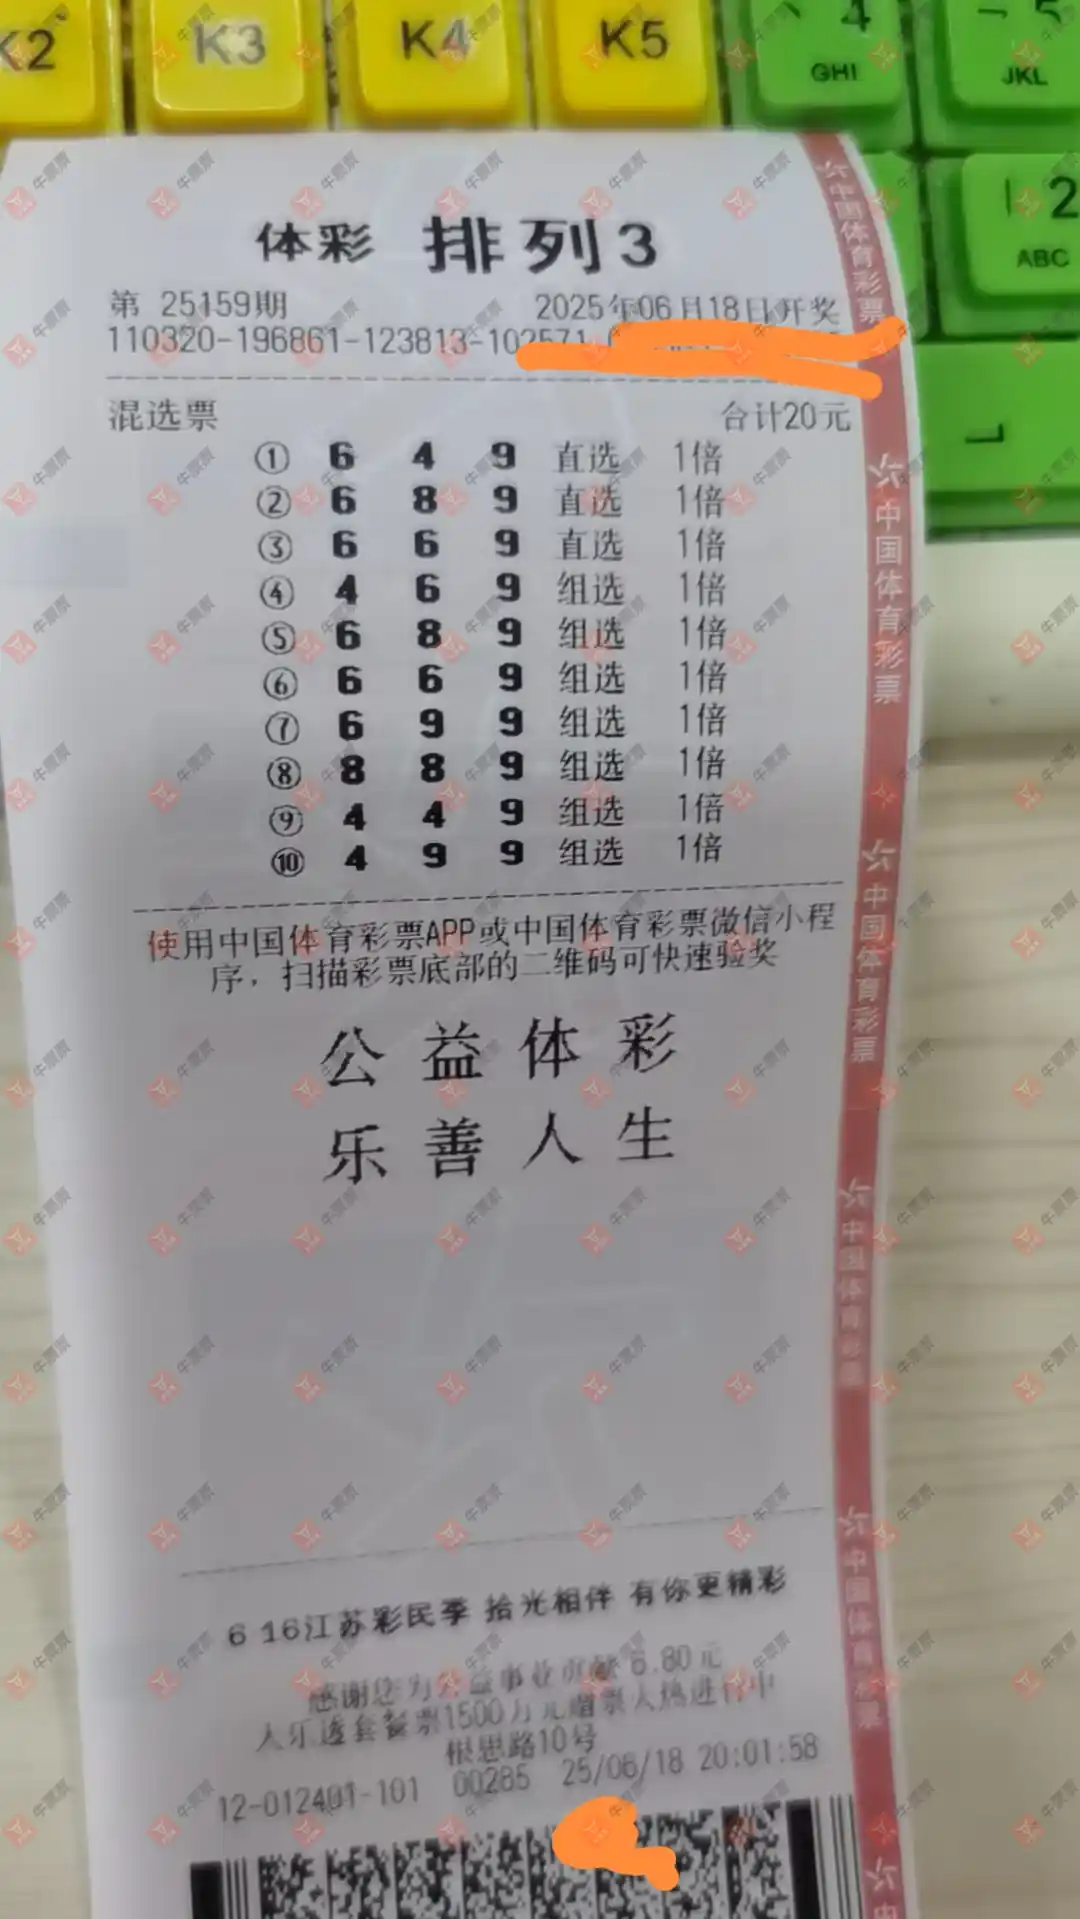 K2 K3 K4 K5 4 5
GHI JKL
2
ABC
体彩 排列3
第 25159期 2025年06月18日开奖
110320-196861-123813-102571
混选票 合计20元
① 6 4 9 直选 1倍
② 6 8 9 直选 1倍
③ 6 6 9 直选 1倍
④ 4 6 9 组选 1倍
⑤ 6 8 9 组选 1倍
⑥ 6 6 9 组选 1倍
⑦ 6 9 9 组选 1倍
⑧ 8 8 9 组选 1倍
⑨ 4 4 9 组选 1倍
⑩ 4 9 9 组选 1倍
使用中国体育彩票APP或中国体育彩票微信小程
序，扫描彩票底部的二维码可快速验奖
公益体彩
乐善人生
6 16江苏彩民季 拾光相伴 有你更精彩
感谢您为公益事业贡献 6.80元
大乐透套餐票1500万元赠票火热进行中
根思路10号
12-012401-101 00285 25/06/18 20:01:58
中国体育彩票
中国体育彩票
中国体育彩票
中国体育彩票
中国体育彩票
中
牛票票